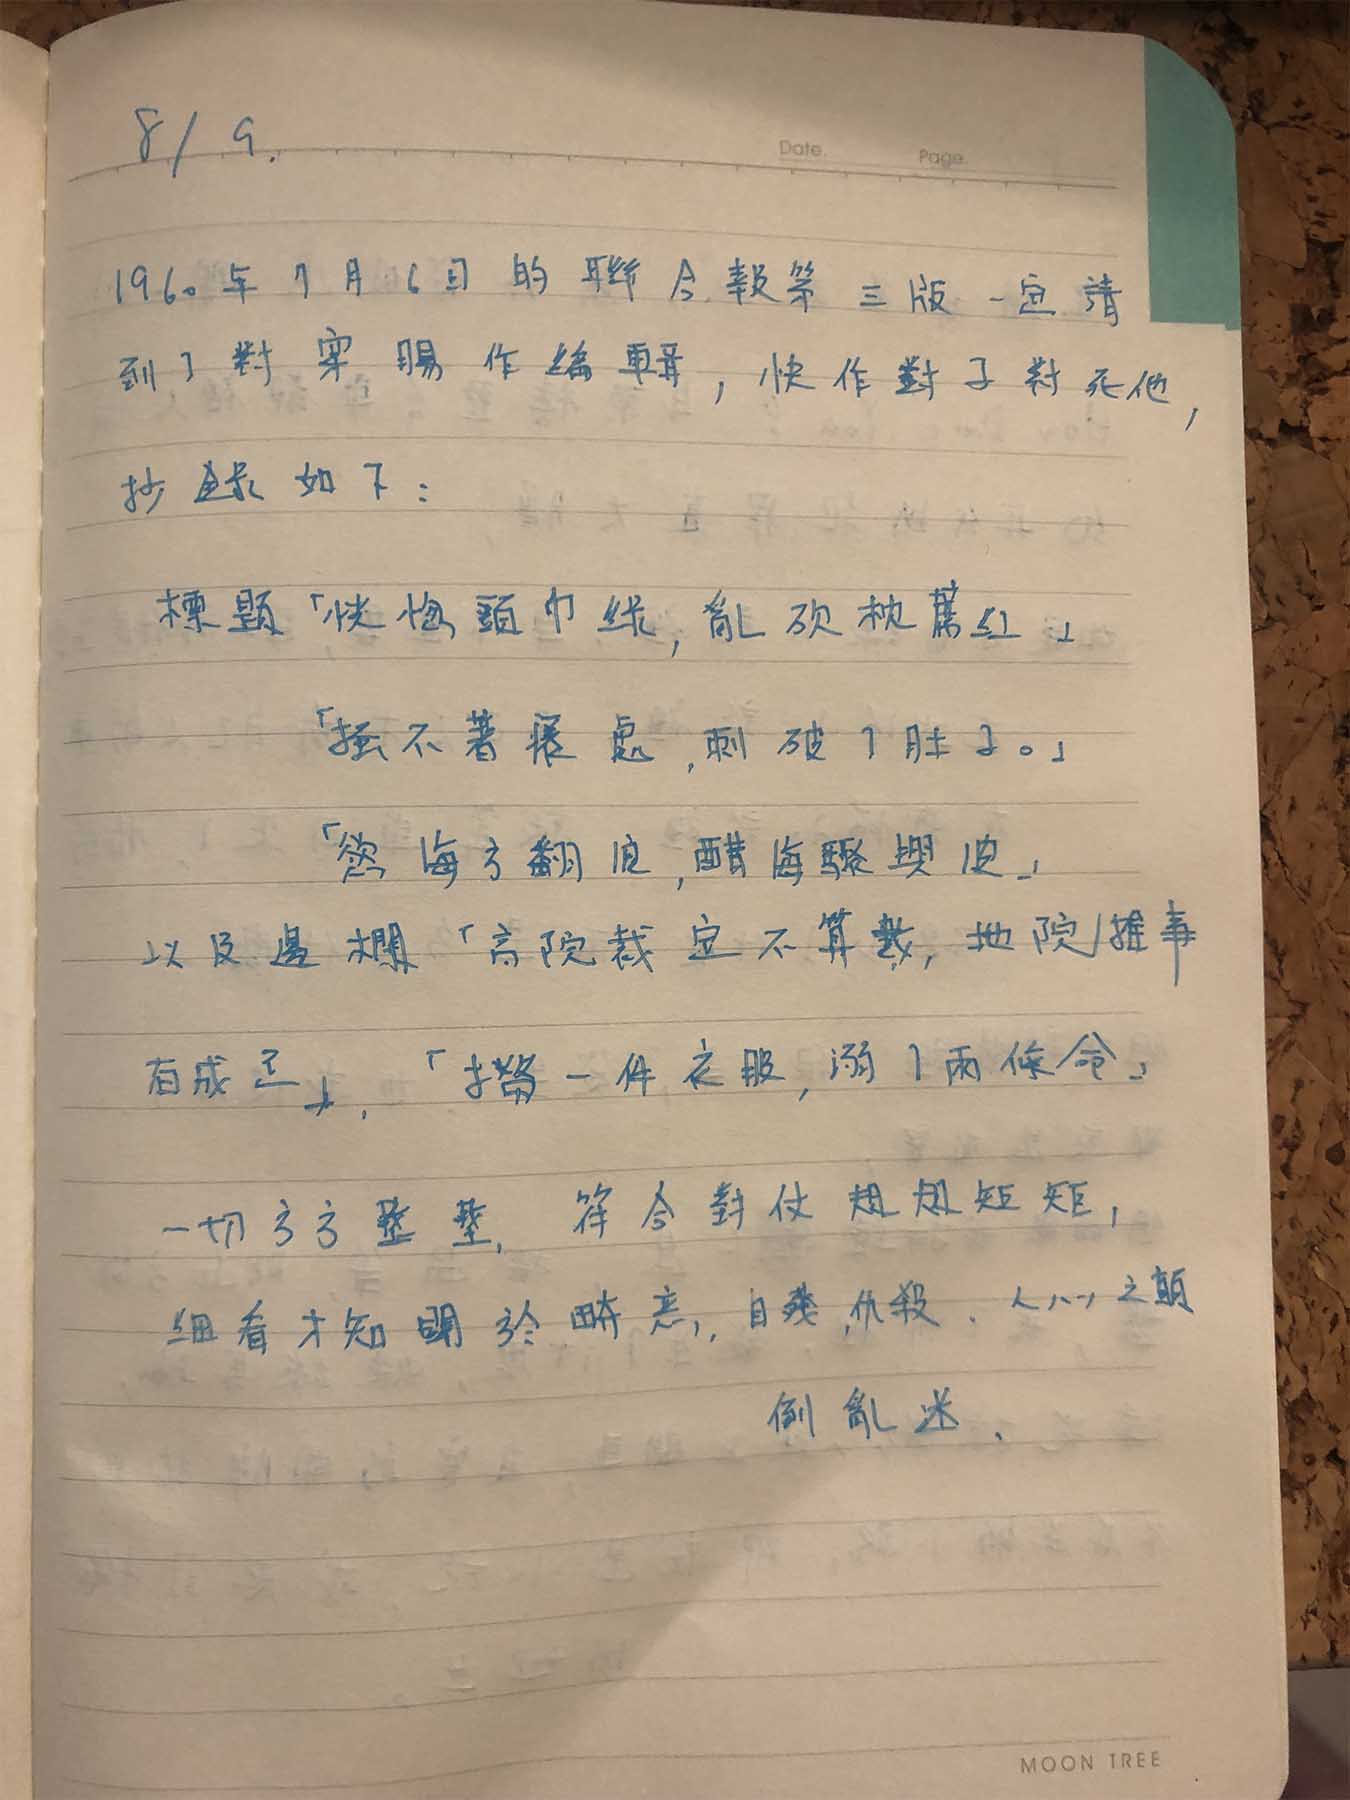 8/9.
Date. Page.
1960年7月6日的聯合報第三版一定請
到了對穿腸作編輯，快作對子對死他，
抄錄如下：
標題「恍惚頭巾綠，亂砍枕蓆紅」
「搔不著癢處，刺破了肚子。」
「慾海方翻波，醋海驟興波」
以及邊欄「高院裁定不算數，地院推事
有成見」，「撈一件衣服，溺了兩條命」
一切方方整整，符合對仗規規矩矩，
細看才知關於畸戀，自殘，仇殺、人心之顛
倒亂迷、
MOON TREE